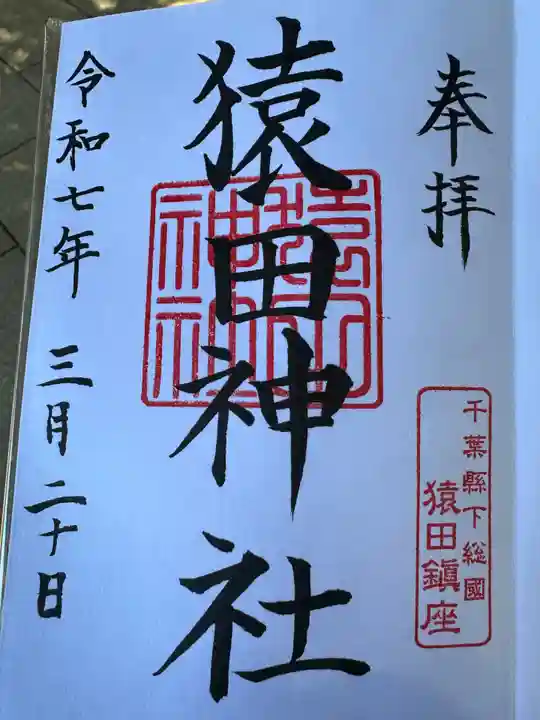 奉拝
千葉縣下総國
猿田鎮座
猿田神社
猿田神社
令和七年 三月二十日